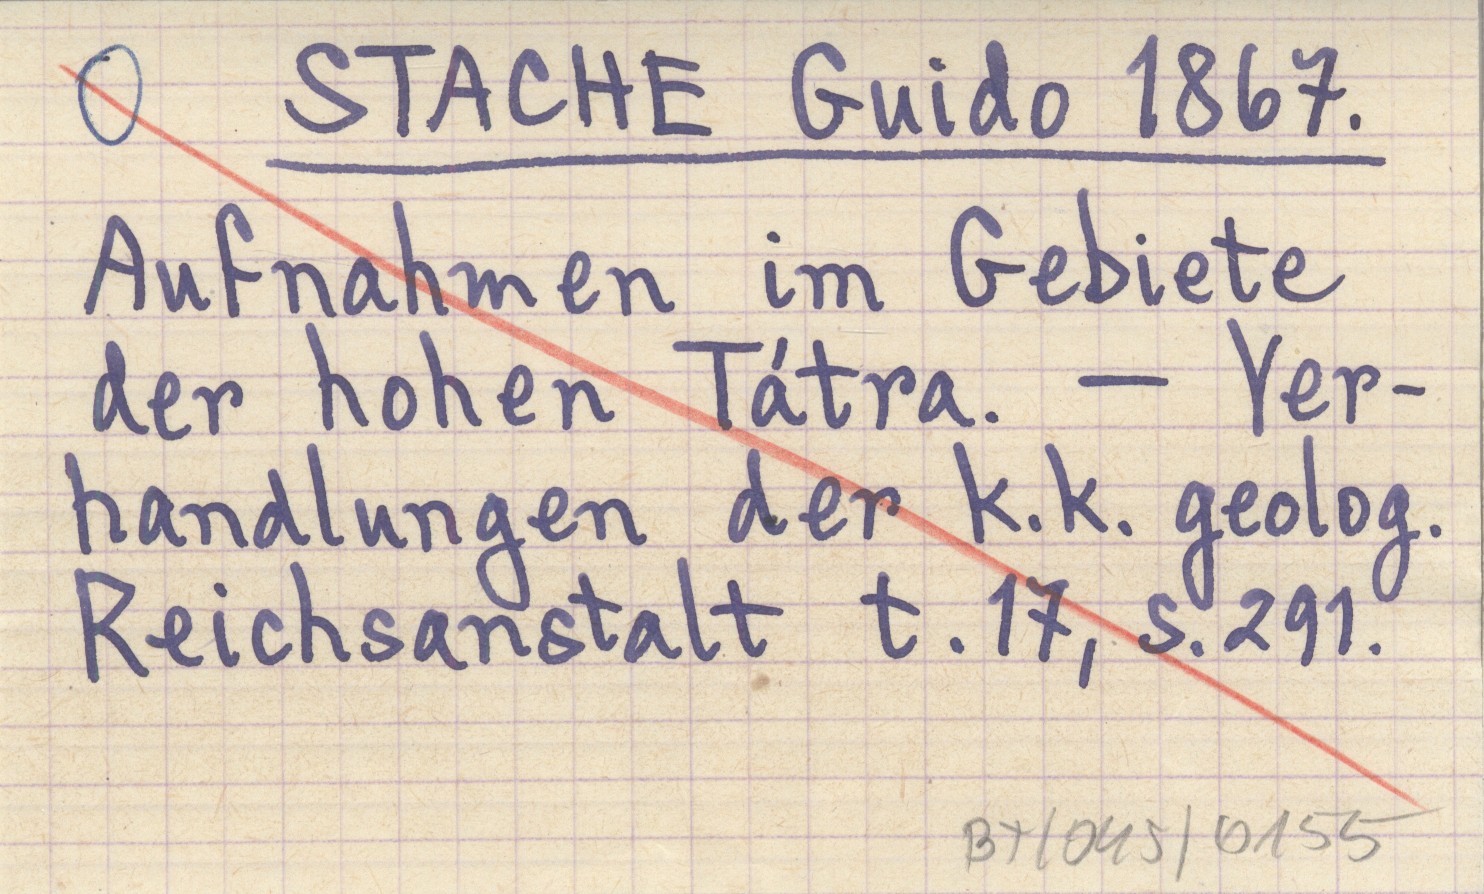 O STACHE Guido 1867.
Aufnahmen im Gebiete
der hohen Tátra. — Ver-
handlungen der k.k. geolog.
Reichsanstalt t. 17, s. 291.
BT/045/0155